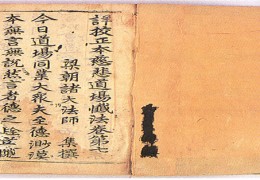 詳校正本慈悲道場懺法卷第七
梁朝諸大法師 集撰
今日道場同業大衆夫至德渺漠
本無言無說然言者德之詮道